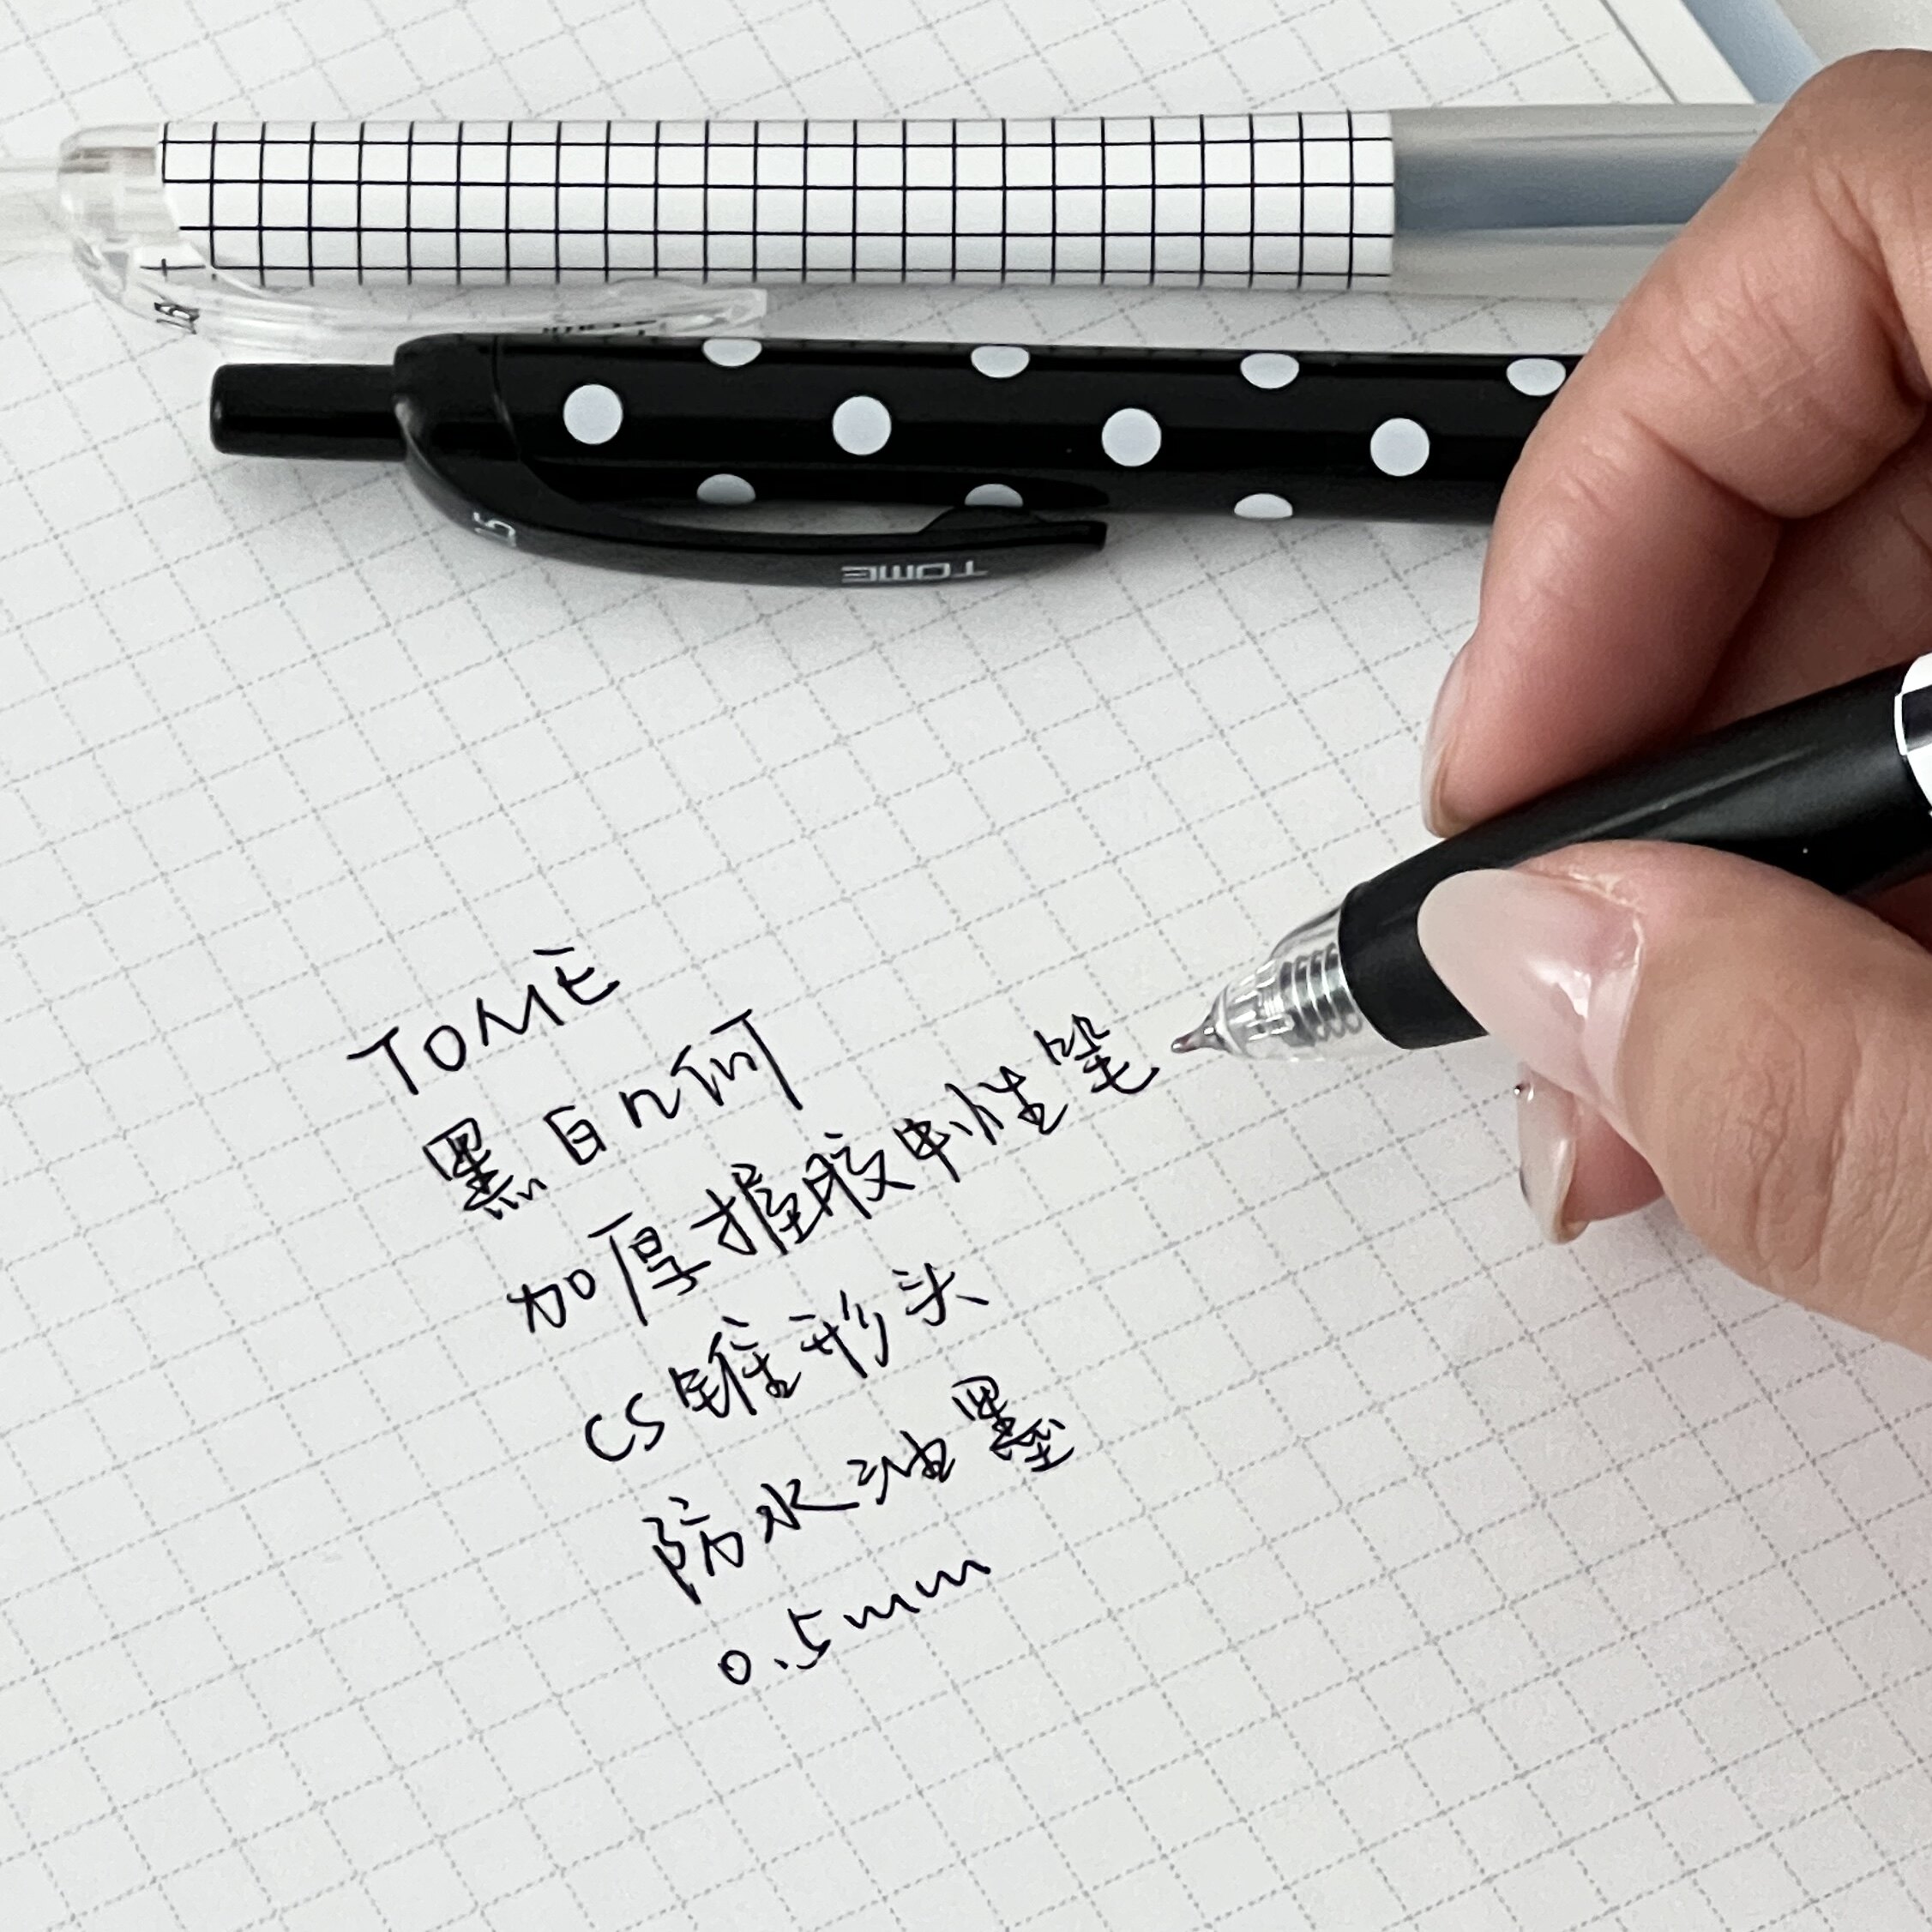 TOME
TOME
黑白几何
加厚握胶中性笔
CS锥形头
防水油墨
0.5mm